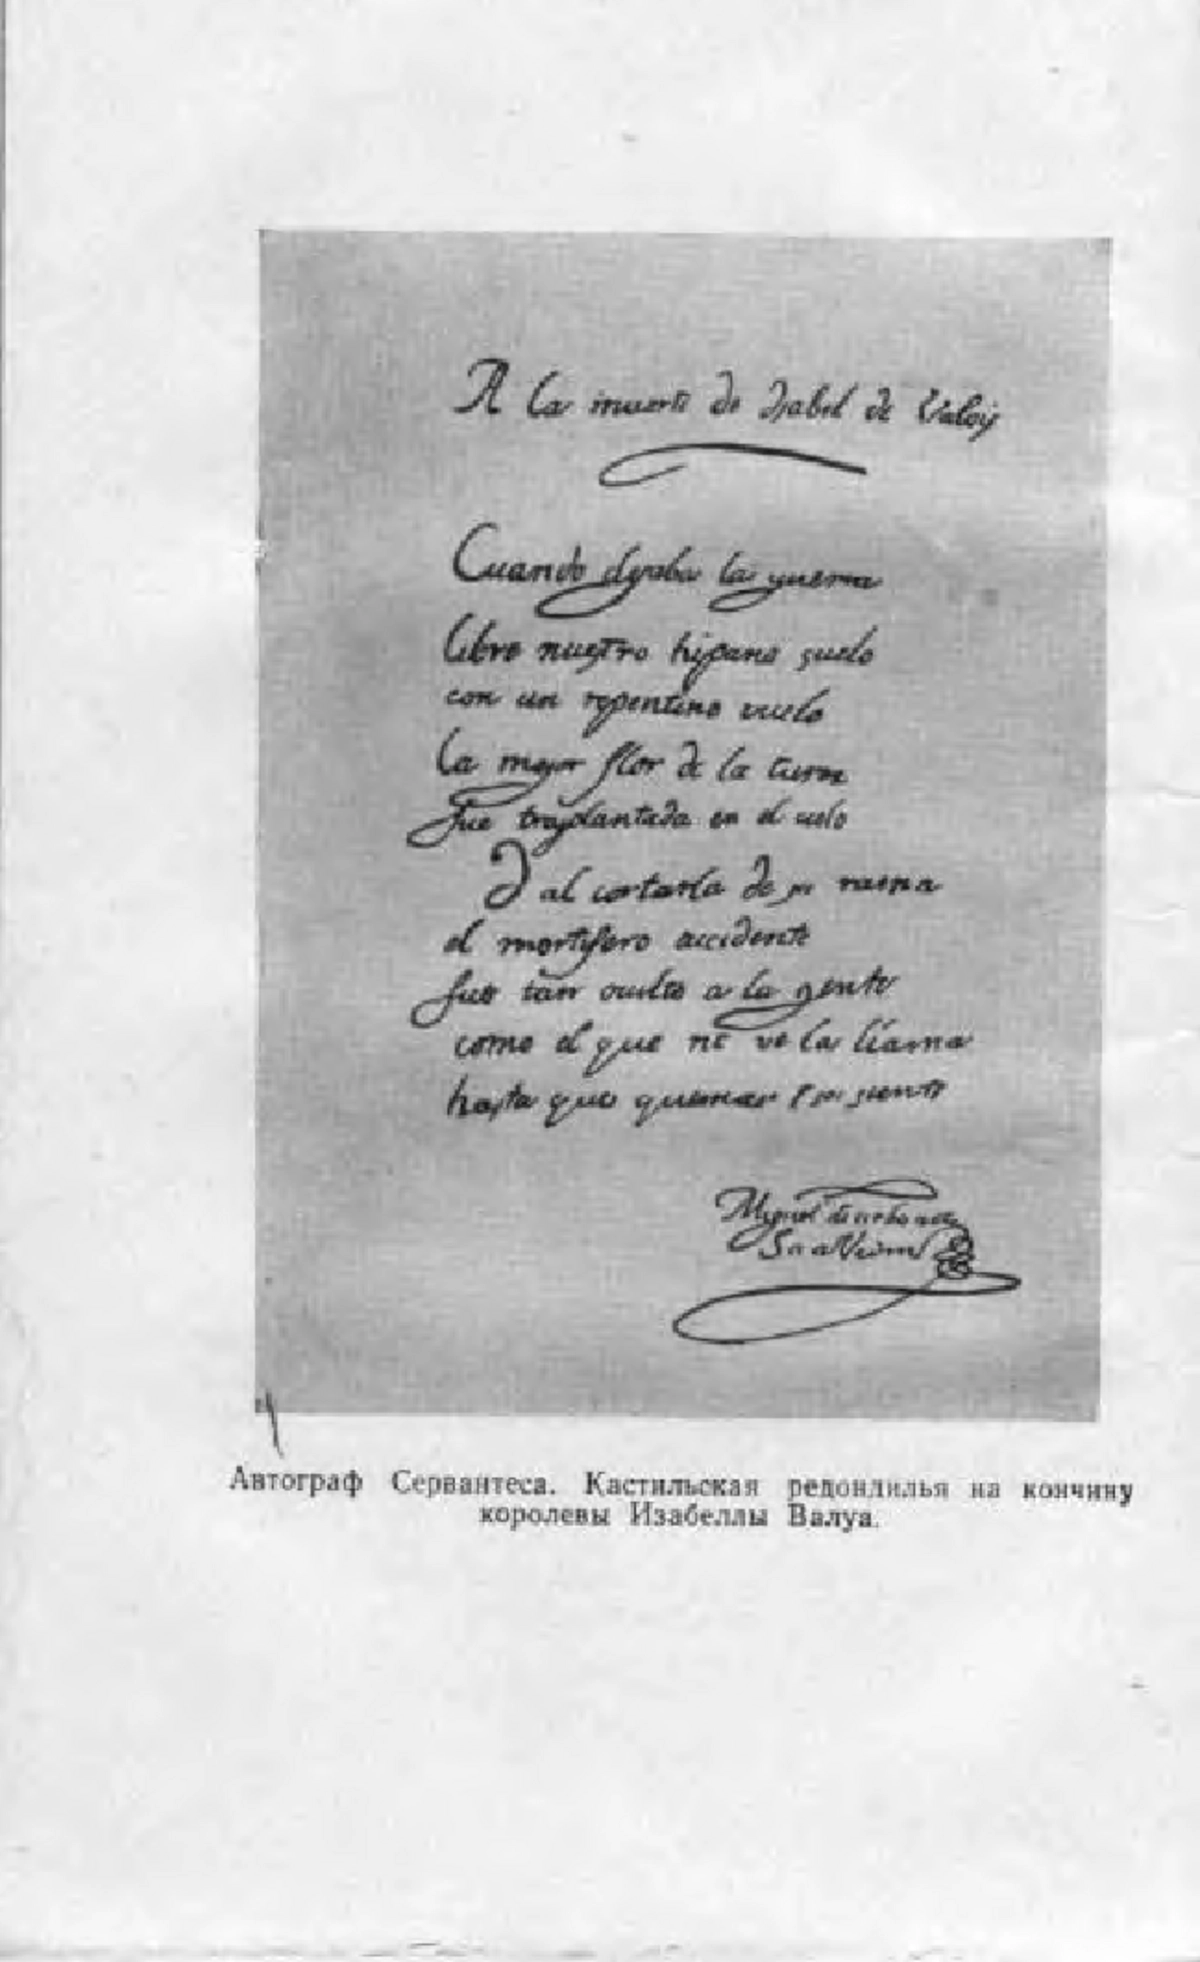 A la muerte de Isabel de Valois
Cuando dejaba la guerra
libre nuestro hispano suelo
con un repentino vuelo
la mejor flor de la tierra
fue trasplantada en el cielo
Y al cortarla de su rama
el mortifero accidente
fue tan oculta a la gente
como el que no ve la llama
hasta que quemar se siente
Miguel de Cerbantes
Saavedra
Автограф Сервантеса. Кастильская редондилья на кончину
королевы Изабеллы Валуа.